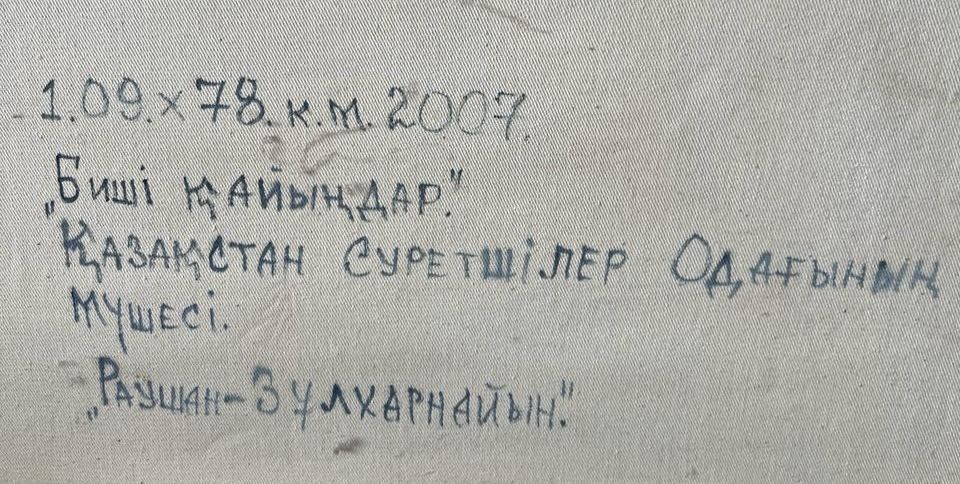 1.09.х 78. к.м. 2007.
„Биші қайыңдар."
Қазақстан Суретшілер Одағының
мүшесі.
„Раушан-Зұлхарнайын."